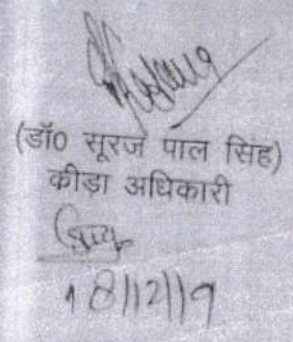 (डॉ0 सूरज पाल सिंह)
कीड़ा अधिकारी
18/12/19